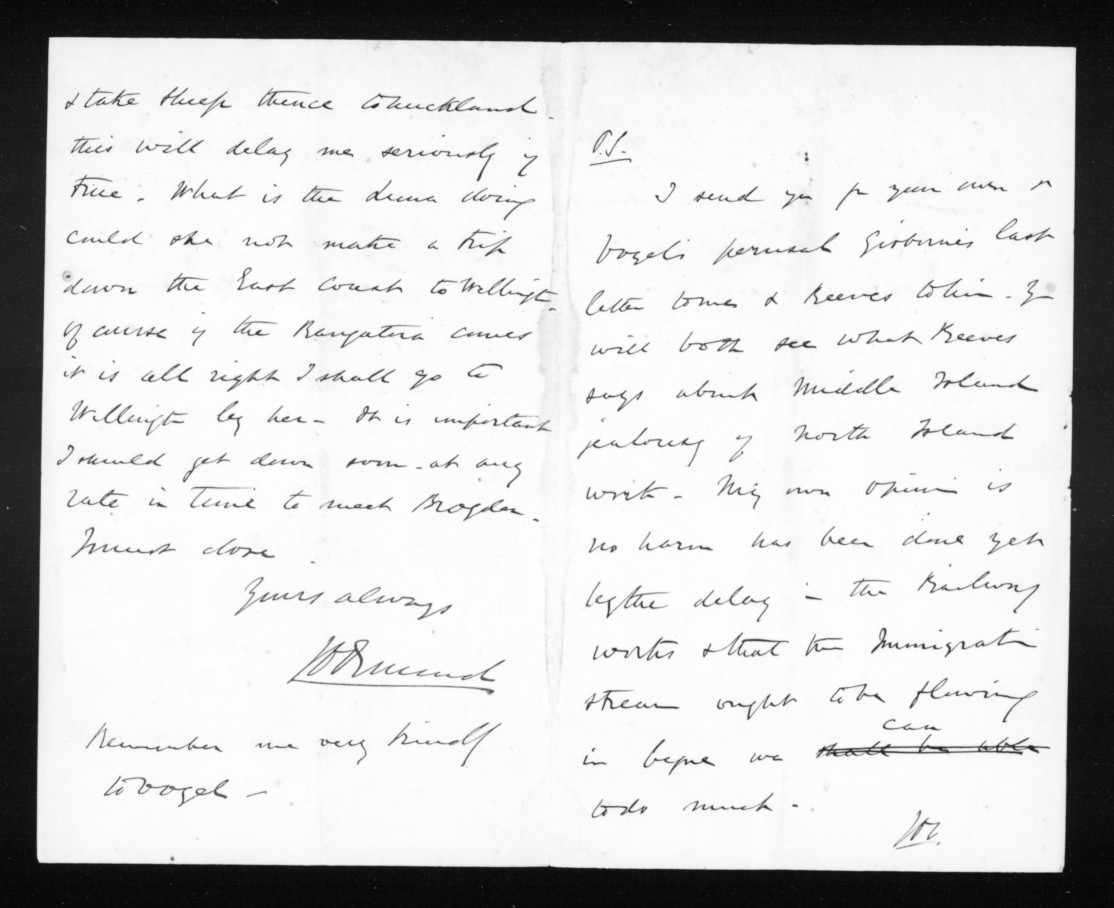 & take Sheep thence to Auckland.
this will delay me seriously if
true. What is the Luna doing
could she not make a trip
down the East Coast to Wellingtn.
Of course if the Rangatira comes
it is all right I shall go to
Wellingtn by her - It is important
I should get down soon - at any
rate in time to meet Brogden.
I must close
Yours always
JD Ormond
Remember me very kindly
to Vogel -
P.S.
I send you for your own &
Vogel's perusal Gisborne's last
letter to me & Reeves to him. You
will both see what Reeves
says about Middle Island
jealousy of North Island
work - My own opinion is
no harm has been done yet
by the delay in the Railway
works & that the Immigratin
stream ought to be flowing
in before we can ~~shall be able~~
to do much -
JDO.